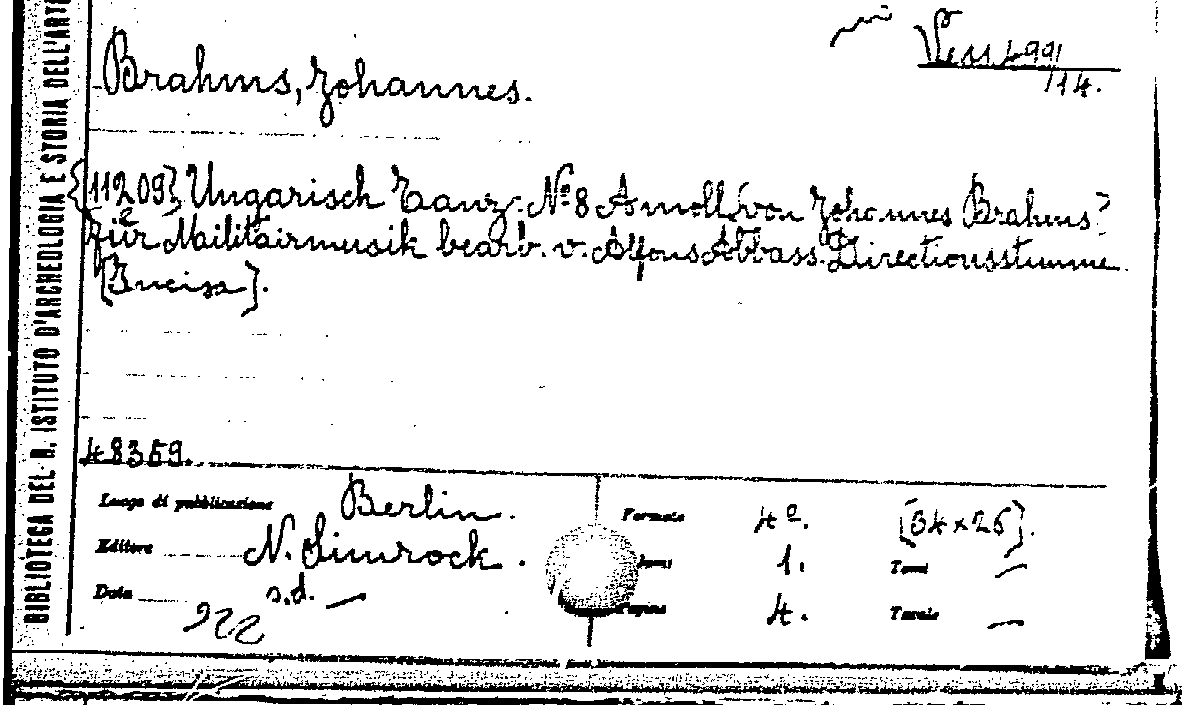 BIBLIOTECA DEL R. ISTITUTO D'ARCHEOLOGIA E STORIA DELL'ARTE
Vess 499/14.
Brahms, Johannes.
{11209}, Ungarisch Tanz. Nº 8 A moll von Johannes Brahms
für Militairmusik bearb. v. Alfons Abbass. Directionsstimme
[Incisa].
48359.
Luogo di pubblicazione Berlin. Formato 4º. [34x26].
Editore N. Simrock. 1. Tomi —
Data s.d. — Pagine 4. Tavole —
922